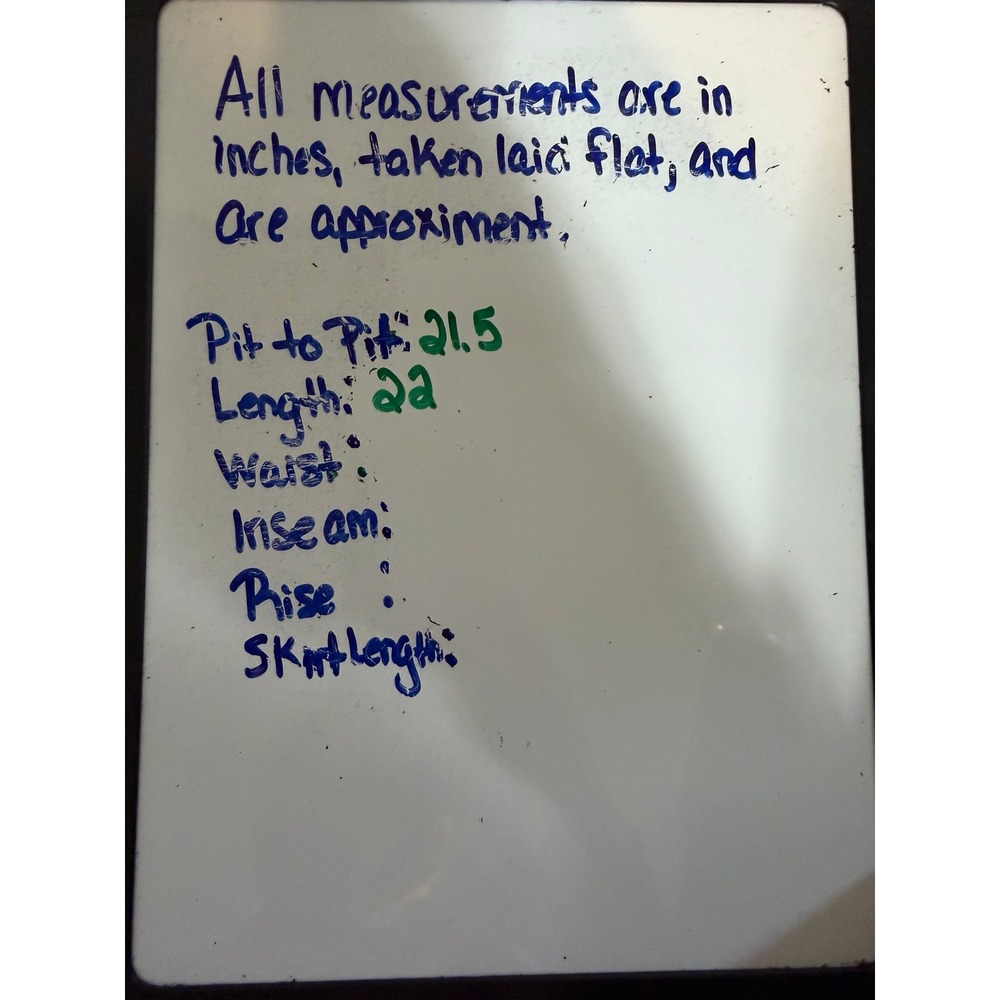 All measurements are in
inches, taken laid flat, and
are approximent.
Pit to Pit: 21.5
Length: 22
Waist:
Inseam:
Rise :
Skirt Length: